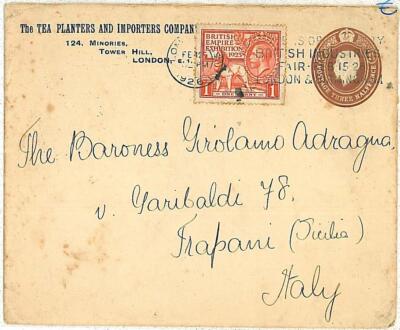 The TEA PLANTERS AND IMPORTERS COMPANY
124, MINORIES,
TOWER HILL,
LONDON
BRITISH
EMPIRE
EXHIBITION
1925
1
1
BRITISH INDUSTRIES
FAIR
LONDON &
1926
The Baroness Girolamo Adragna
v. Garibaldi 78.
Trapani (Sicilia)
Italy